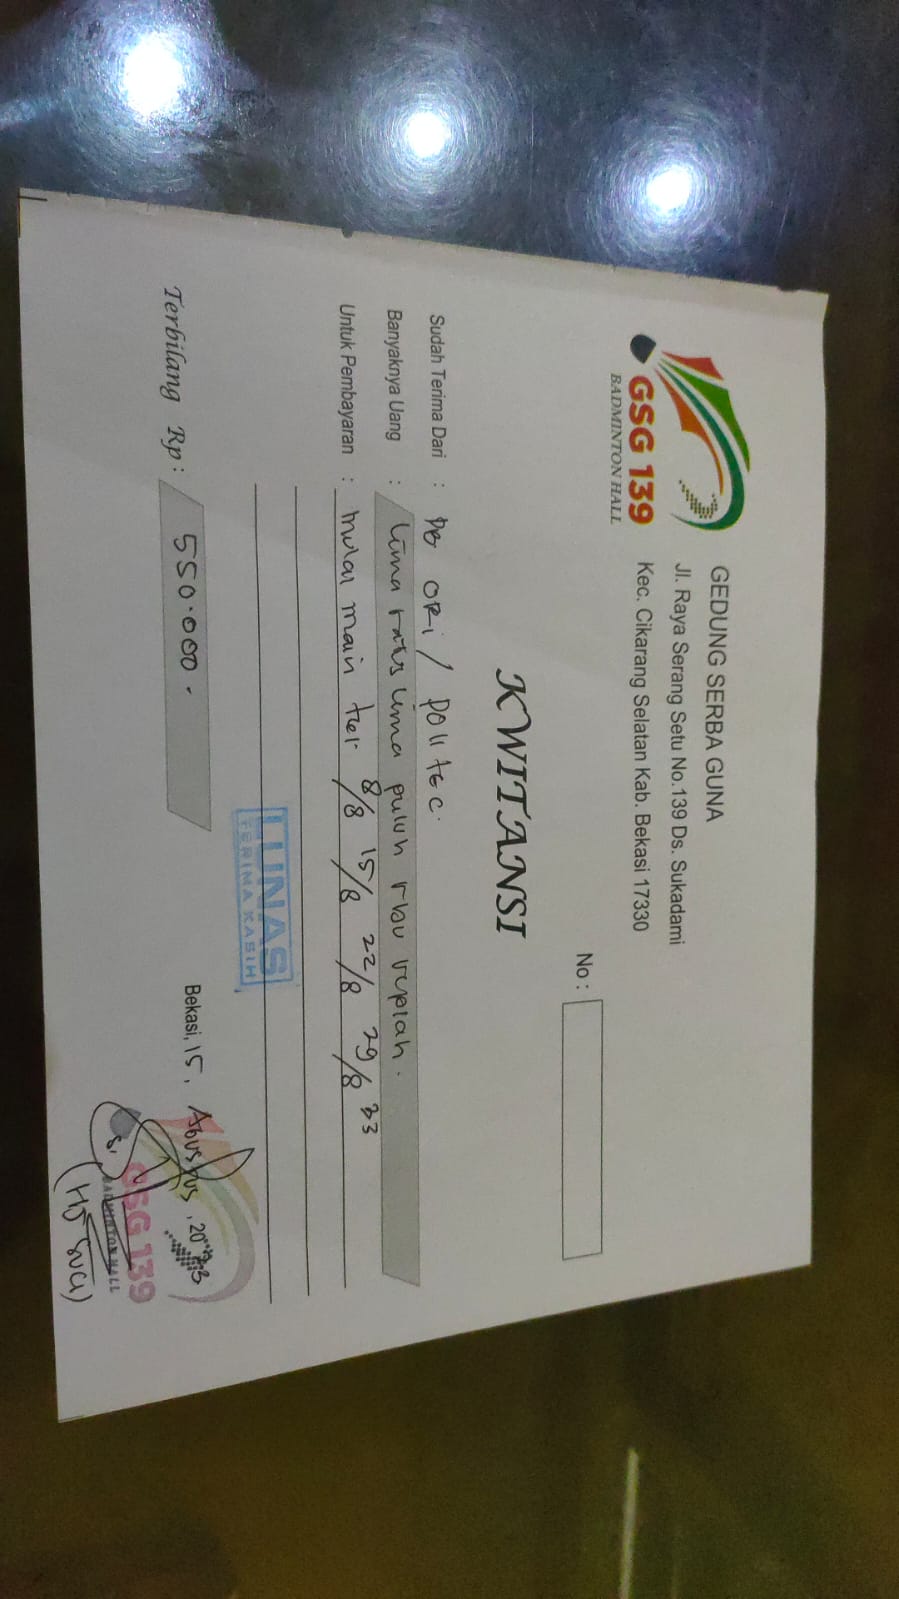 GSG 139
BADMINTON HALL
GEDUNG SERBA GUNA
Jl. Raya Serang Setu No.139 Ds. Sukadami
Kec. Cikarang Selatan Kab. Bekasi 17330
No :
KWITANSI
Sudah Terima Dari : PB ORI / POLITEC.
Banyaknya Uang : lima ratus lima puluh ribu rupiah.
Untuk Pembayaran : mulai main 8/8 15/8 22/8 29/8
LUNAS
TERIMA KASIH
Terbilang Rp : 550.000.
Bekasi, 15, Agustus, 2023
GSG 139
BADMINTON HALL
(Hj SUCI)